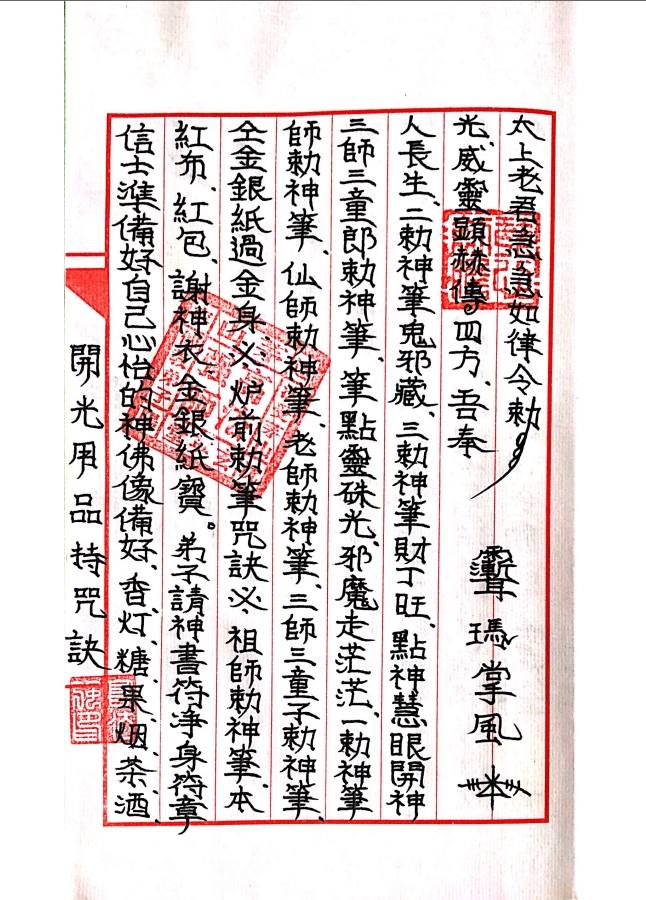 開光用品持咒訣
信士準備好自己心怡的神佛像備好、香灯、糖果、烟、茶酒、
紅布、紅包、謝神衣金銀紙寶。弟子請神書符淨身符章
仝金銀紙過金身、必、炉前勅筆咒訣必、祖師勅神筆、本
師勅神筆、仙師勅神筆、老師勅神筆、三師三童子勅神筆、
三師三童郎勅神筆、筆點靈硃光、邪魔走茫茫、一勅神筆
人長生、二勅神筆鬼邪藏、三勅神筆財丁旺、點神慧眼開神
光、威靈顯赫傳四方、吾奉
太上老君急急如律令勅
掌風